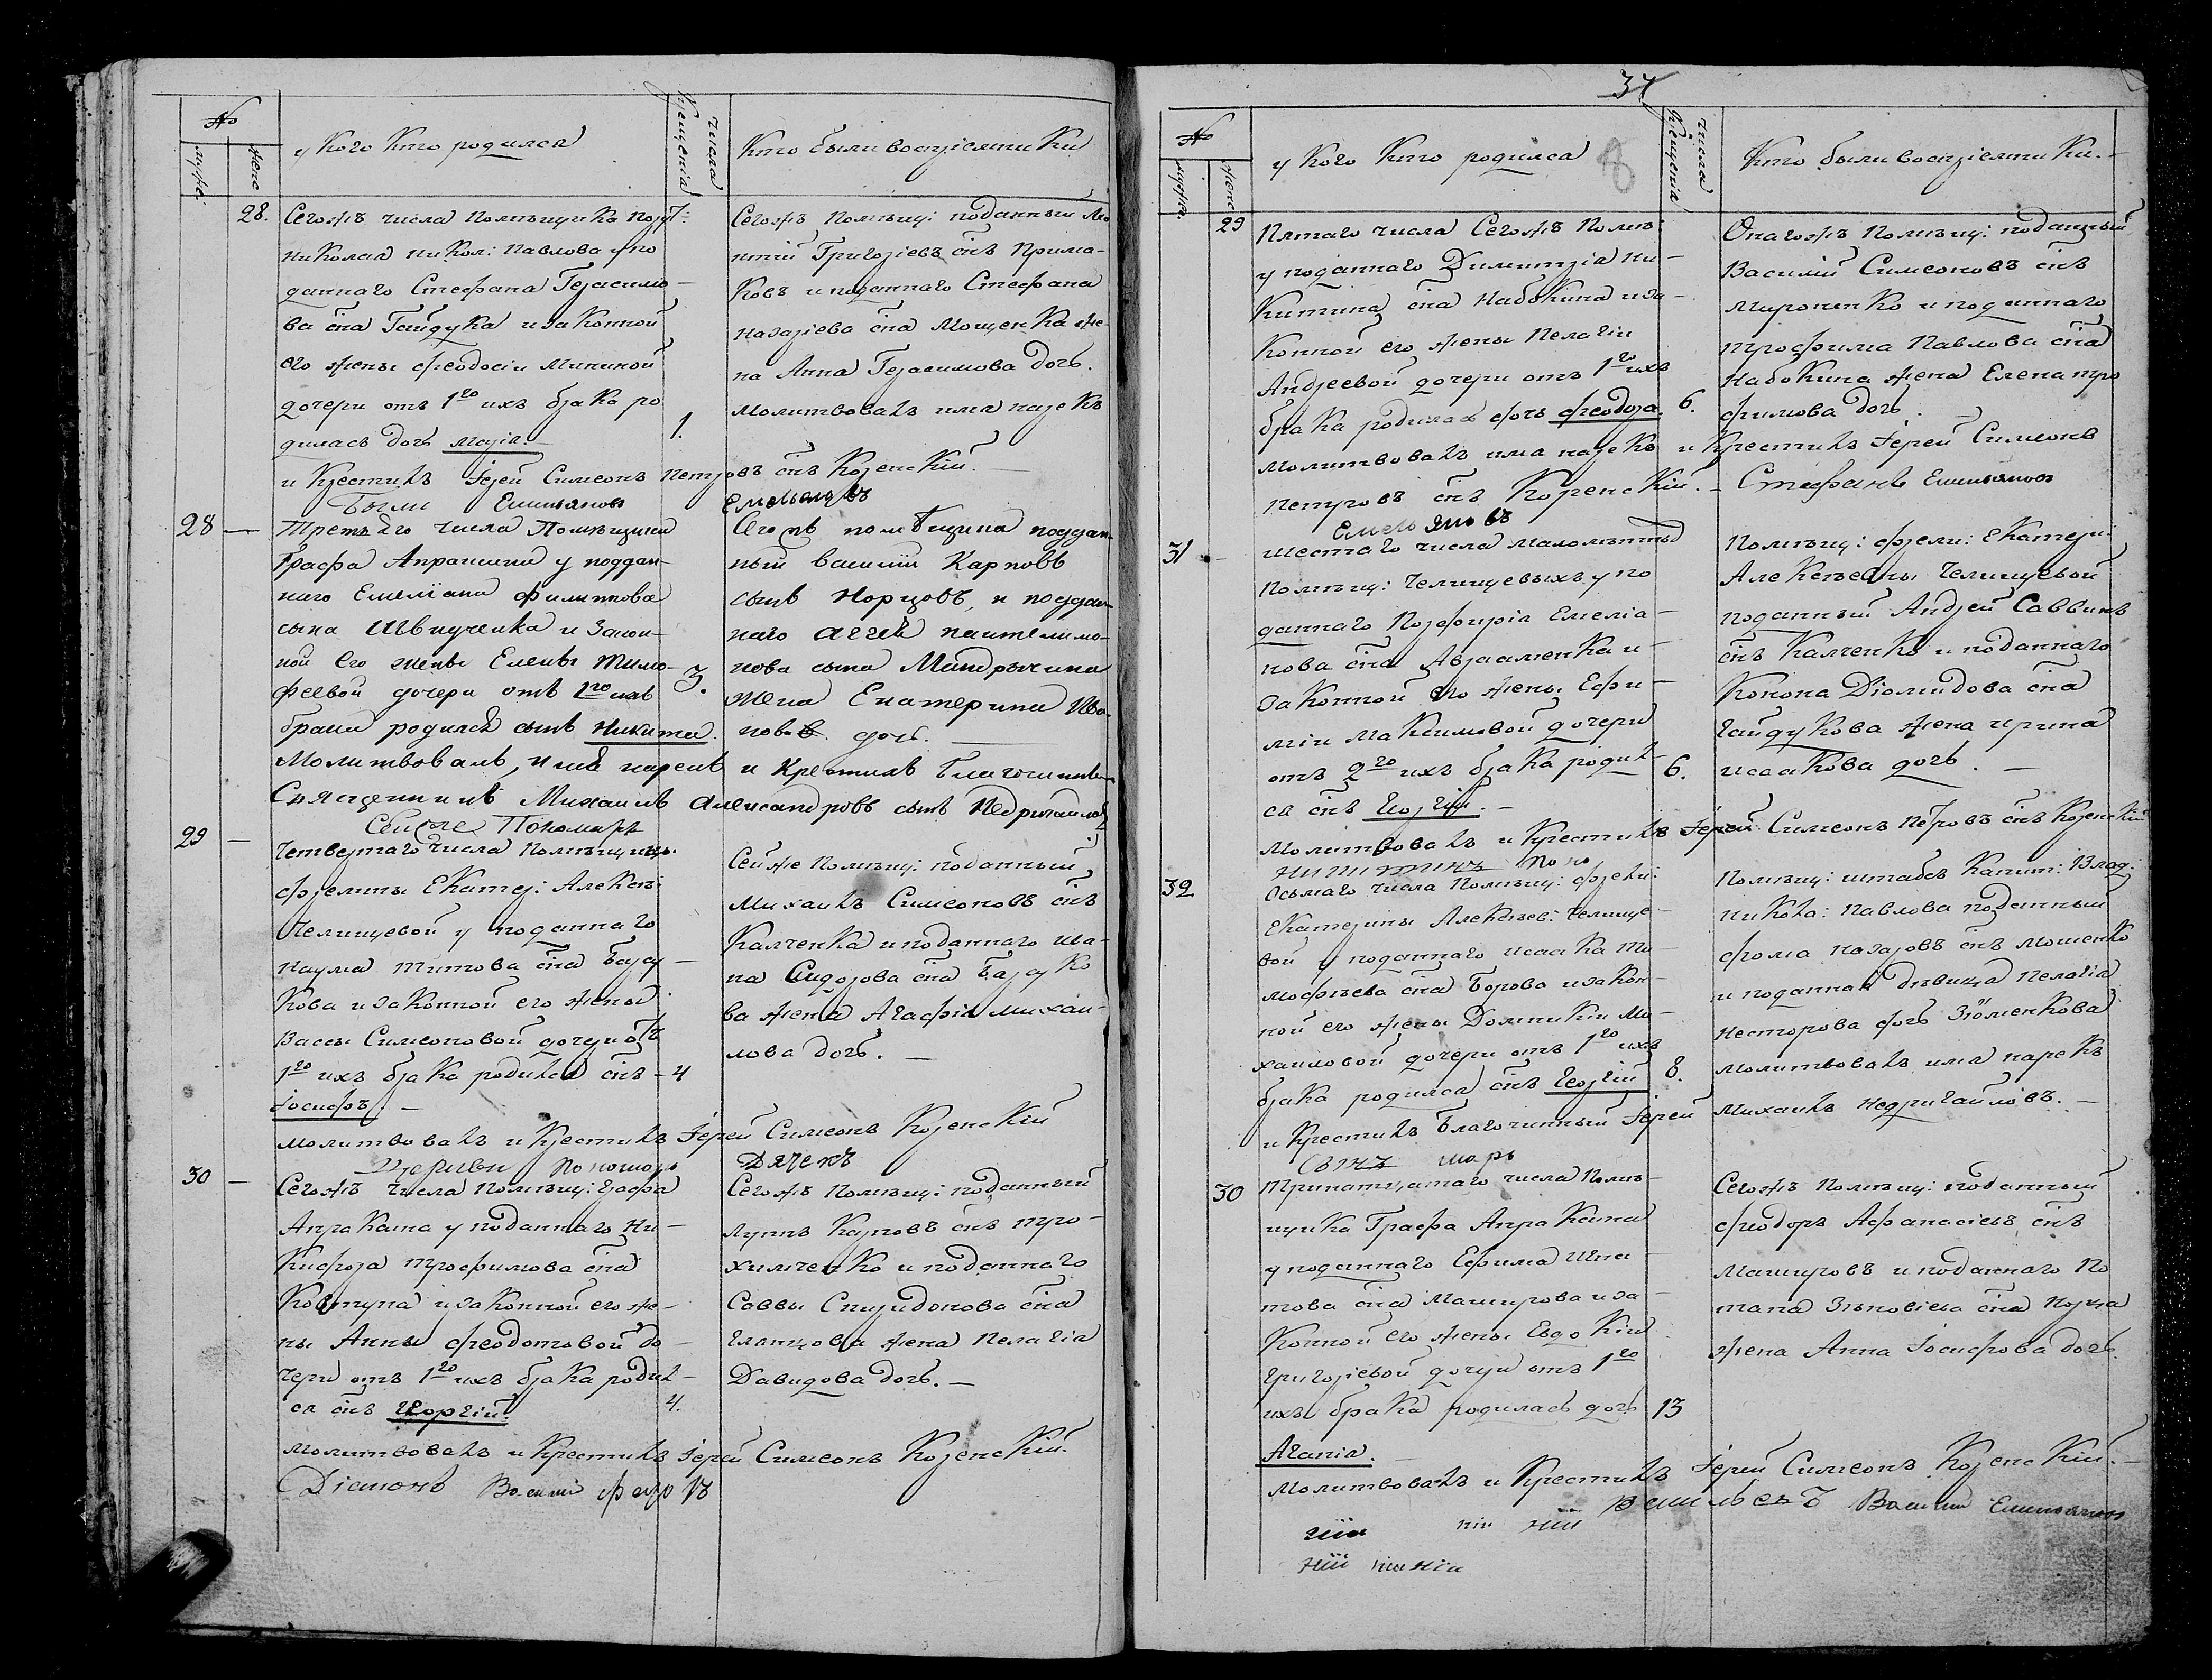 №
муже.
жене
у Кого Кто родился
числа Крещенія
Кто были воспріемники
28.
Сегожъ числа Помѣщика
николая никол: Павлова у по
даннаго Стефана Герасимо-
ва сна Гайдука и законной
его жены феодосіи Мининой
дочери отъ 1го ихъ брака ро
дилась дочь марія.-
1.
Сегожъ Помѣщ: поданный
Григоріевъ снъ Прима-
ковъ и поданнаго Стефана
назаріева сна Мощенка же-
на Анна Герасимова дочь.
молитвовалъ имя нарекъ
и Крестилъ Іерей Симеонъ Петровъ снъ Коренскій.
Емельяновъ
28 —
Третьяго числа Помѣщика
Графа Апраксина у поддан-
наго Емеліана Филиппова
сына Швидченка и закон-
ной его жены Елены Тимо-
феевой дочери отъ 1го ихъ
брака родился сынъ Никита.
3.
Сегожъ помѣщика поддан-
ный василій Карповъ
сынъ Норцовъ, и поддан-
наго Аггея пантелимо-
нова сына Мандрыкина
жена Екатерина Ива-
нова дочь.
Молитвовалъ, имя нарекъ и Крестилъ Благочинный
Священникъ Михаилъ Александровъ сынъ Недригайловъ
Пономарь
29 —
Четвертаго числа Помѣщицы
фрелины Екатер: Алексѣ:
Челищевой у поданнаго
наума титова сна Бару-
кова и законной его жены
Вассы Симеоновой дочери отъ
1го ихъ брака родился снъ -
Іосифъ. -
4
Сей же Помѣщ: поданный
Михаилъ Симеоновъ снъ
Калченка и поданнаго ива-
на Сидорова сна Баруко
ва жена Агафія михаи-
лова дочь. -
молитвовалъ и Крестилъ Іерей Симеонъ Коренскій
Дячекъ
30 —
Сегожъ числа Помѣщ: графа
Апраксина у поданнаго Ни-
кифора трофимова сна
Ковтуна и законной его же-
ны Анны феодотовой до-
чери отъ 1го ихъ брака родил-
ся снъ Георгій.
4.
Сегожъ Помѣщ: поданный
лупъ Карповъ снъ тро-
химченко и поданнаго
Саввы Спиридонова сна
Гланцова жена Пелагія
Давидова дочь. -
молитвовалъ и Крестилъ Іерей Симеонъ Коренскій.
Діаконъ
34
8
№
муже.
жене
у Кого Кто родился
числа Крещенія
Кто были воспріемники.-
29
Пятаго числа Сегожъ Помѣ:
у поданнаго Димитрія ни-
китина сна Набокина и за-
конной его жены Пелагіи
Андреевой дочери отъ 1го ихъ
брака родилась дочь феодора.
6.
Онагожъ Помѣщ: поданный
Василій Симеоновъ снъ
мироненко и поданнаго
трофима Павлова сна
Набокина жена Елена тро
фимова дочь. -
молитвовалъ имя нарекъ и Крестилъ Іерей Симеонъ
петровъ снъ Коренскій. - Стефанъ Емельяновъ
Емельяновъ
31 -
шестаго числа малолѣтныхъ
Помѣщ: Челищевыхъ у по
даннаго Порфирія Емеліа-
нова сна Авраменка и
законной его жены Ефи-
міи Максимовой дочери
отъ 2го ихъ брака родил-
ся снъ Георгій. -
6.
Помѣщ: фрели: Екатери:
Алексѣевны Челищевой
поданный Андрей Саввинъ
снъ Калченко и поданнаго
Конона Діомидова сна
Гайдукова жена ирина
исаакова дочь. -
молитвовалъ и Крестилъ Іерей Симеонъ Петровъ снъ Коренскій
32
Осьмаго числа Помѣщ: фрели:
Екатерины Алексѣев: Челище-
вой у поданнаго исаака ти-
мофѣева сна Борова и закон-
ной его жены Домникіи Ми-
хаиловой дочери отъ 1го ихъ
брака родился снъ Георгій
8.
Помѣщ: штабсъ Капит: Влад:
Никола: Павлова поданный
фома назаровъ снъ мошенко
и поданная дѣвица Пелагія
несторова дочь Зюменкова
молитвовалъ имя нарекъ
и Крестилъ Благочинный Іерей Михаилъ Недригайловъ. -
30
Тринатцатаго числа Помѣ-
щика Графа Апраксина
у поданнаго Ефима игна-
това сна Маширова и за-
конной его жены Евдокіи
григоріевой дочери отъ 1го
ихъ брака родилась дочь
Агапія.
13
Сегожъ Помѣщ: поданный
феодоръ Афанасіевъ снъ
Машировъ и поданнаго По
тапа Зѣновіева сна
жена Анна Іосифова дочь.
молитвовалъ и Крестилъ Іерей Симеонъ Коренскій. -
Василій Емельяновъ